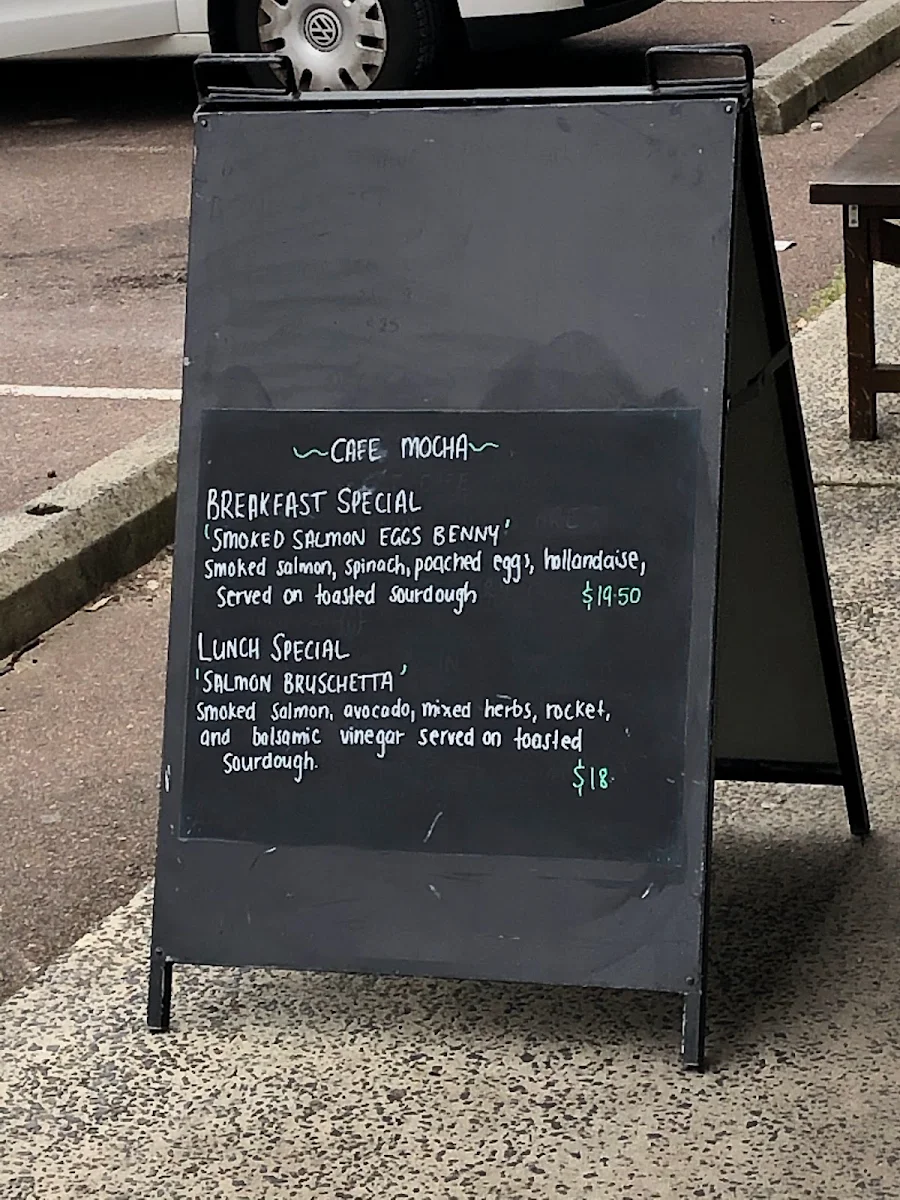 ~CAFE MOCHA~
BREAKFAST SPECIAL
'SMOKED SALMON EGGS BENNY'
Smoked salmon, spinach, poached eggs, hollandaise,
Served on toasted sourdough $19.50
LUNCH SPECIAL
'SALMON BRUSCHETTA'
Smoked Salmon, avocado, mixed herbs, rocket,
and balsamic vinegar served on toasted
Sourdough.
$18.